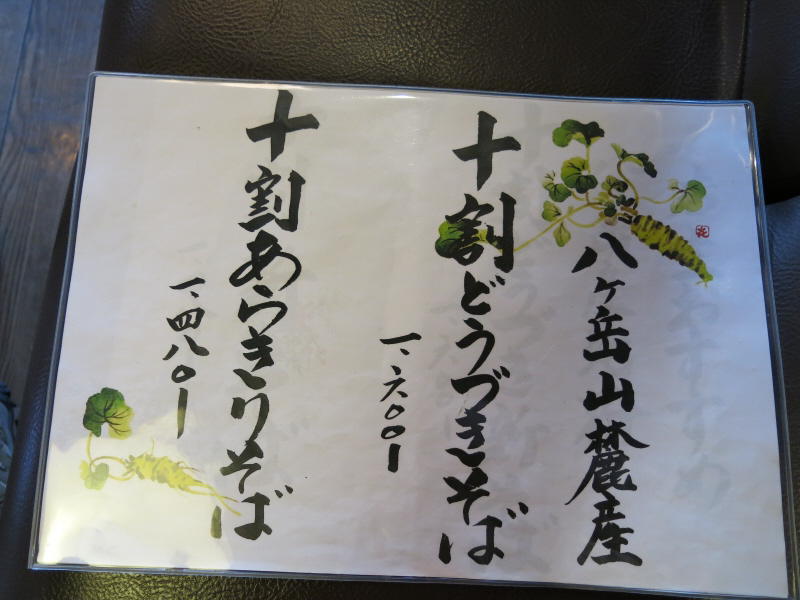 八ヶ岳山麓産
十割どうづきそば
一、六〇〇ー
十割あらきりそば
一、四八〇ー